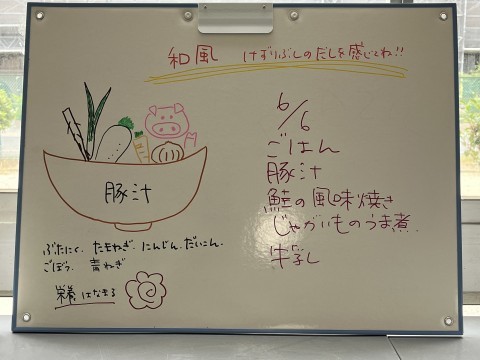 和風　けずりぶしのだしを感じてね!!
6/6
ごはん
豚汁
鮭の風味焼き
じゃがいものうま煮
牛乳
豚汁
ぶたにく、たまねぎ、にんじん、だいこん、
ごぼう、青ねぎ
栄養はなまる